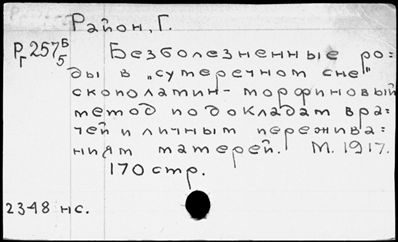 Район, Г.
Рг 257 Б/5
Безболезненные ро-
ды в „сумеречном сне"
скополатин-морфиновый
метод по докладам вра-
чей и личным пережива-
ниям матерей. М. 1917.
170 стр.
2348 нс.